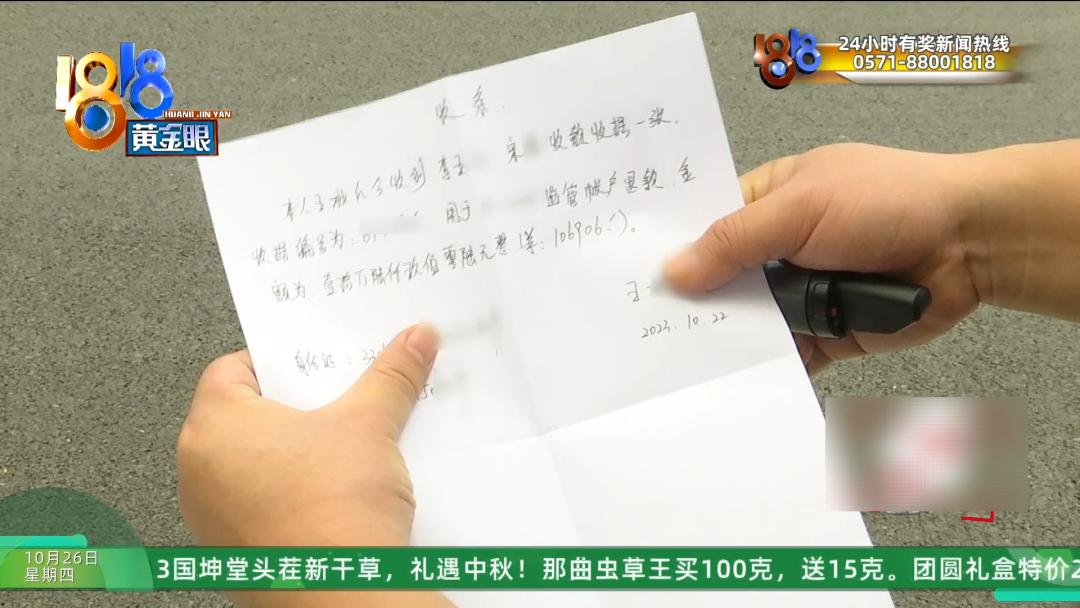 1818
HUANG JIN YAN
黄金眼
1818
24小时有奖新闻热线
0571-88001818
收条
本人王 今收到李 宋 收款收据一张.
收据编号为: 用于 监管帐户退款.金
额为:壹拾万陆仟玖佰零陆元整(¥:106906.)。
王
2023.10.22
身份证:33
10月26日
星期四
3国坤堂头茬新干草，礼遇中秋！那曲虫草王买100克，送15克。团圆礼盒特价2